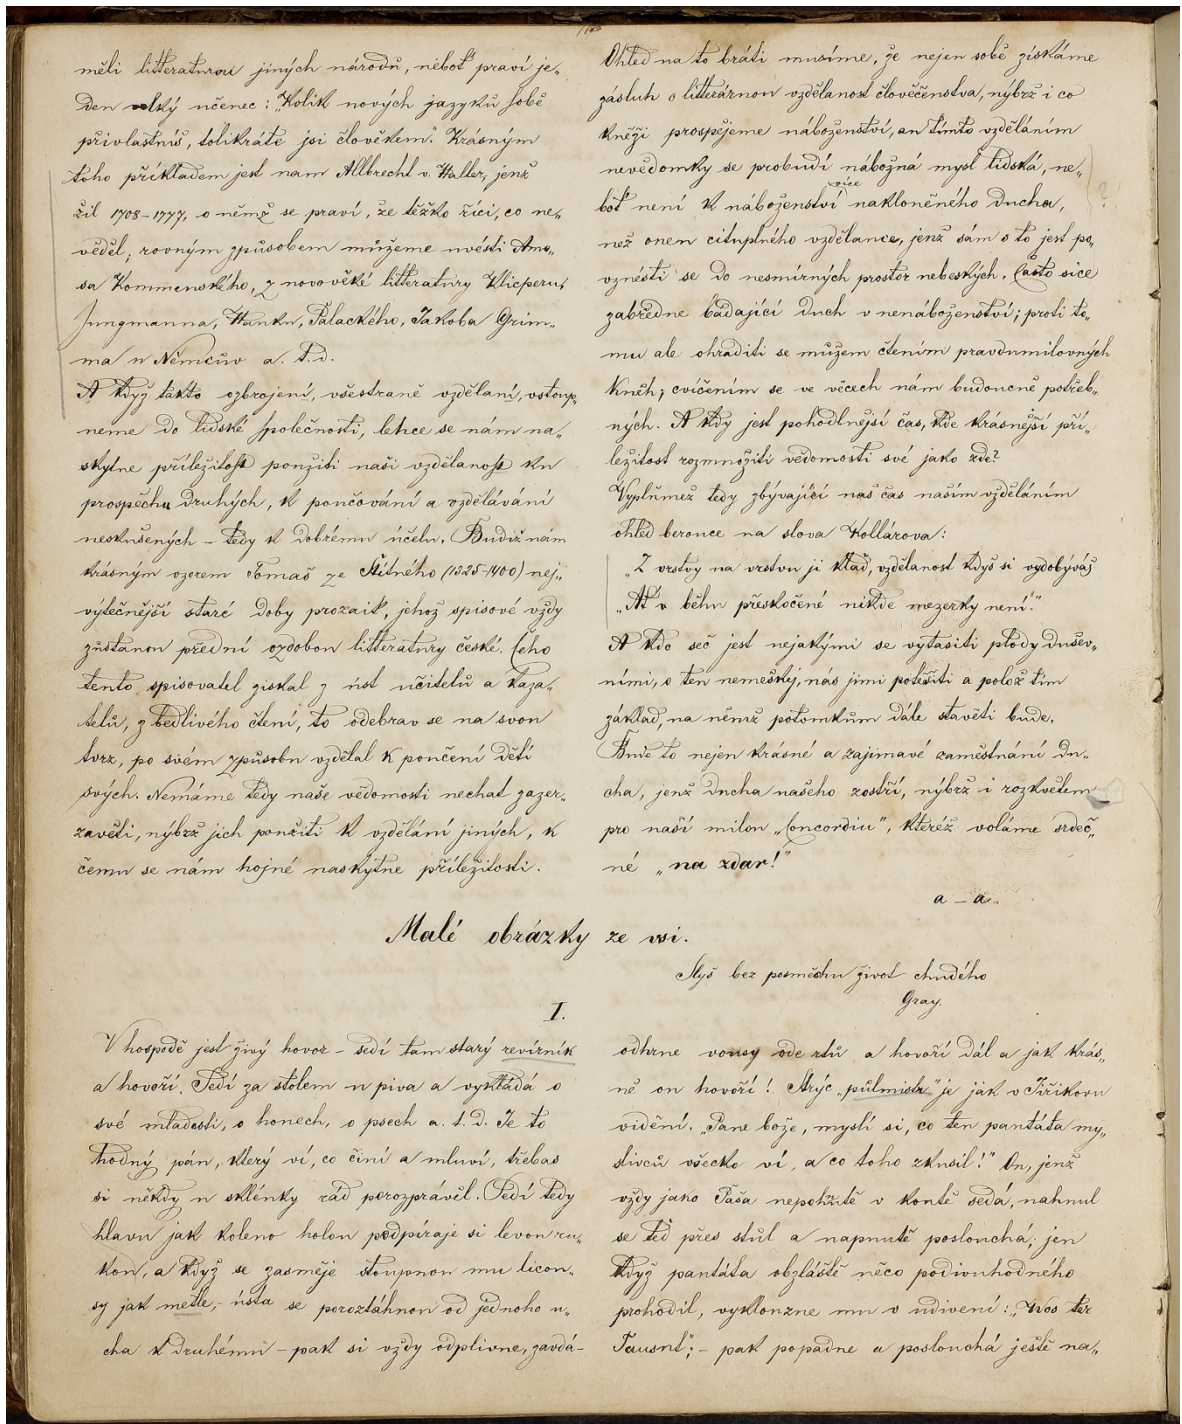 měli litteraturou jiných národů, neboť praví je„
den velký učenec: „Kolik nových jazyků sobě
přivlastníš, tolikráte jsi člověkem." Krásným
toho příkladem jest nam Allbrecht v. Haller, jenž
žil 1708-1777, o němž se praví, že těžko říci, co ne„
věděl; rovným způsobem můžeme uvésti Amo„
sa Kommenského, z novověké litteratury Klicperu,
Jungmanna, Hanku, Palackého, Jakoba Grim„
ma u Němcův a. t. d.
A když takto ozbrojení, všestraně vzděláni, vstoup„
neme do lidské společnosti, lehce se nám na„
skytne příležitost použiti naši vzdělanost ku
prospěchu druhých, k poučování a vzdělávání
neskušených – tedy k dobrému účelu. Budiž nám
krásným vzorem Tomaš ze Štítného (1325-1400) nej„
výtečnější staré doby prozaik, jehož spisové vždy
zůstanou přední ozdobou litteratury české. Čeho
tento spisovatel získal z úst učitelů a kaza„
telů, z bedlivého čtení, to odebrav se na svou
tvrz, po svém způsobu vzdělal k poučení dětí
svých. Nemáme tedy naše vědomosti nechat zazer„
zavěti, nýbrž jich použiti k vzdělání jiných, k
čemu se nám hojné naskýtne příležitosti.
Ohled na to bráti musíme, že nejen sobě získáme
zásluh o litterárnou vzdělanost člověčenstva, nýbrž i co
kněži prospějeme náboženství, an tímto vzděláním
nevědomky se probudí nábožná mysl lidská, ne„
více
boť není k náboženství nakloněného ducha,
než onen cituplného vzdělance, jenž sám s to jest po„
vznésti se do nesmírných prostor nebeských. Často sice
zabředne bádající duch v nenáboženství; proti to„
mu ale ohraditi se můžem čtením pravdumilovných
kněh; cvičením se ve věcech nám budoucně potřeb„
ných. A kdy jest pohodlnější čas, kde krásnější pří„
ležitost rozmnožiti vědomosti své jako zde?
Vyplňmež tedy zbývající náš čas naším vzděláním
ohled berouce na slova Kollárova:
„Z vrstvy na vrstvu ji klaď, vzdělanost když si vydobýváš
„Ať v běhu přeskočené nikde mezerky není."
A kdo seč jest nejakými se vytasiti plody dušev„
ními, o ten nemeškej, nás jimi potěšiti a polož tím
základ, na němž potomkům dále stavěti bude.
Bude to nejen krásné a zajimavé zaměstnání du„
cha, jenž ducha našého zostří, nýbrž i rozkvětem
pro naší milou „Concordiu", kteréž voláme srdeč„
né „na zdar!"
a – a.
Malé obrázky ze vsi.
Slyš bez posměchu život chudého
Gray.
I.
V hospodě jest živý hovor – sedí tam starý revírník
a hovoří. Sedí za stolem u piva a vykládá o
své mladosti, o honech, o psech a. t. d. Je to
hodný pán, který ví, co činí a mluví, třebas
si někdy u sklénky rád porozprávěl. Sedí tedy
hlavu jak koleno holou podpíraje si levou ru„
kou, a když se zasměje stoupnou mu licou„
sy jak metle, – ústa se poroztáhnou od jednoho u„
cha k druhému – pak si vždy odplivne, zavdá-
odhrne vousy ode rtů a hovoří dál a jak krás„
ně on hovoří! Strýc „půlmistr" je jak v Jiříkovu
vidění. „Pane bože, myslí si, co ten pantáta my„
slivců všecko ví, a co toho zkusil!" On, jenž
vždy jako Paša nepohnutě v koutě sedá, nahnul
se teď přes stůl a napnutě poslouchá; jen
když pantáta obzláště něco podivuhodného
prohodil, vyklouzne mu v udivení: „Wos ter
Tausnt"; – pak popadne a poslouchá ještě na„